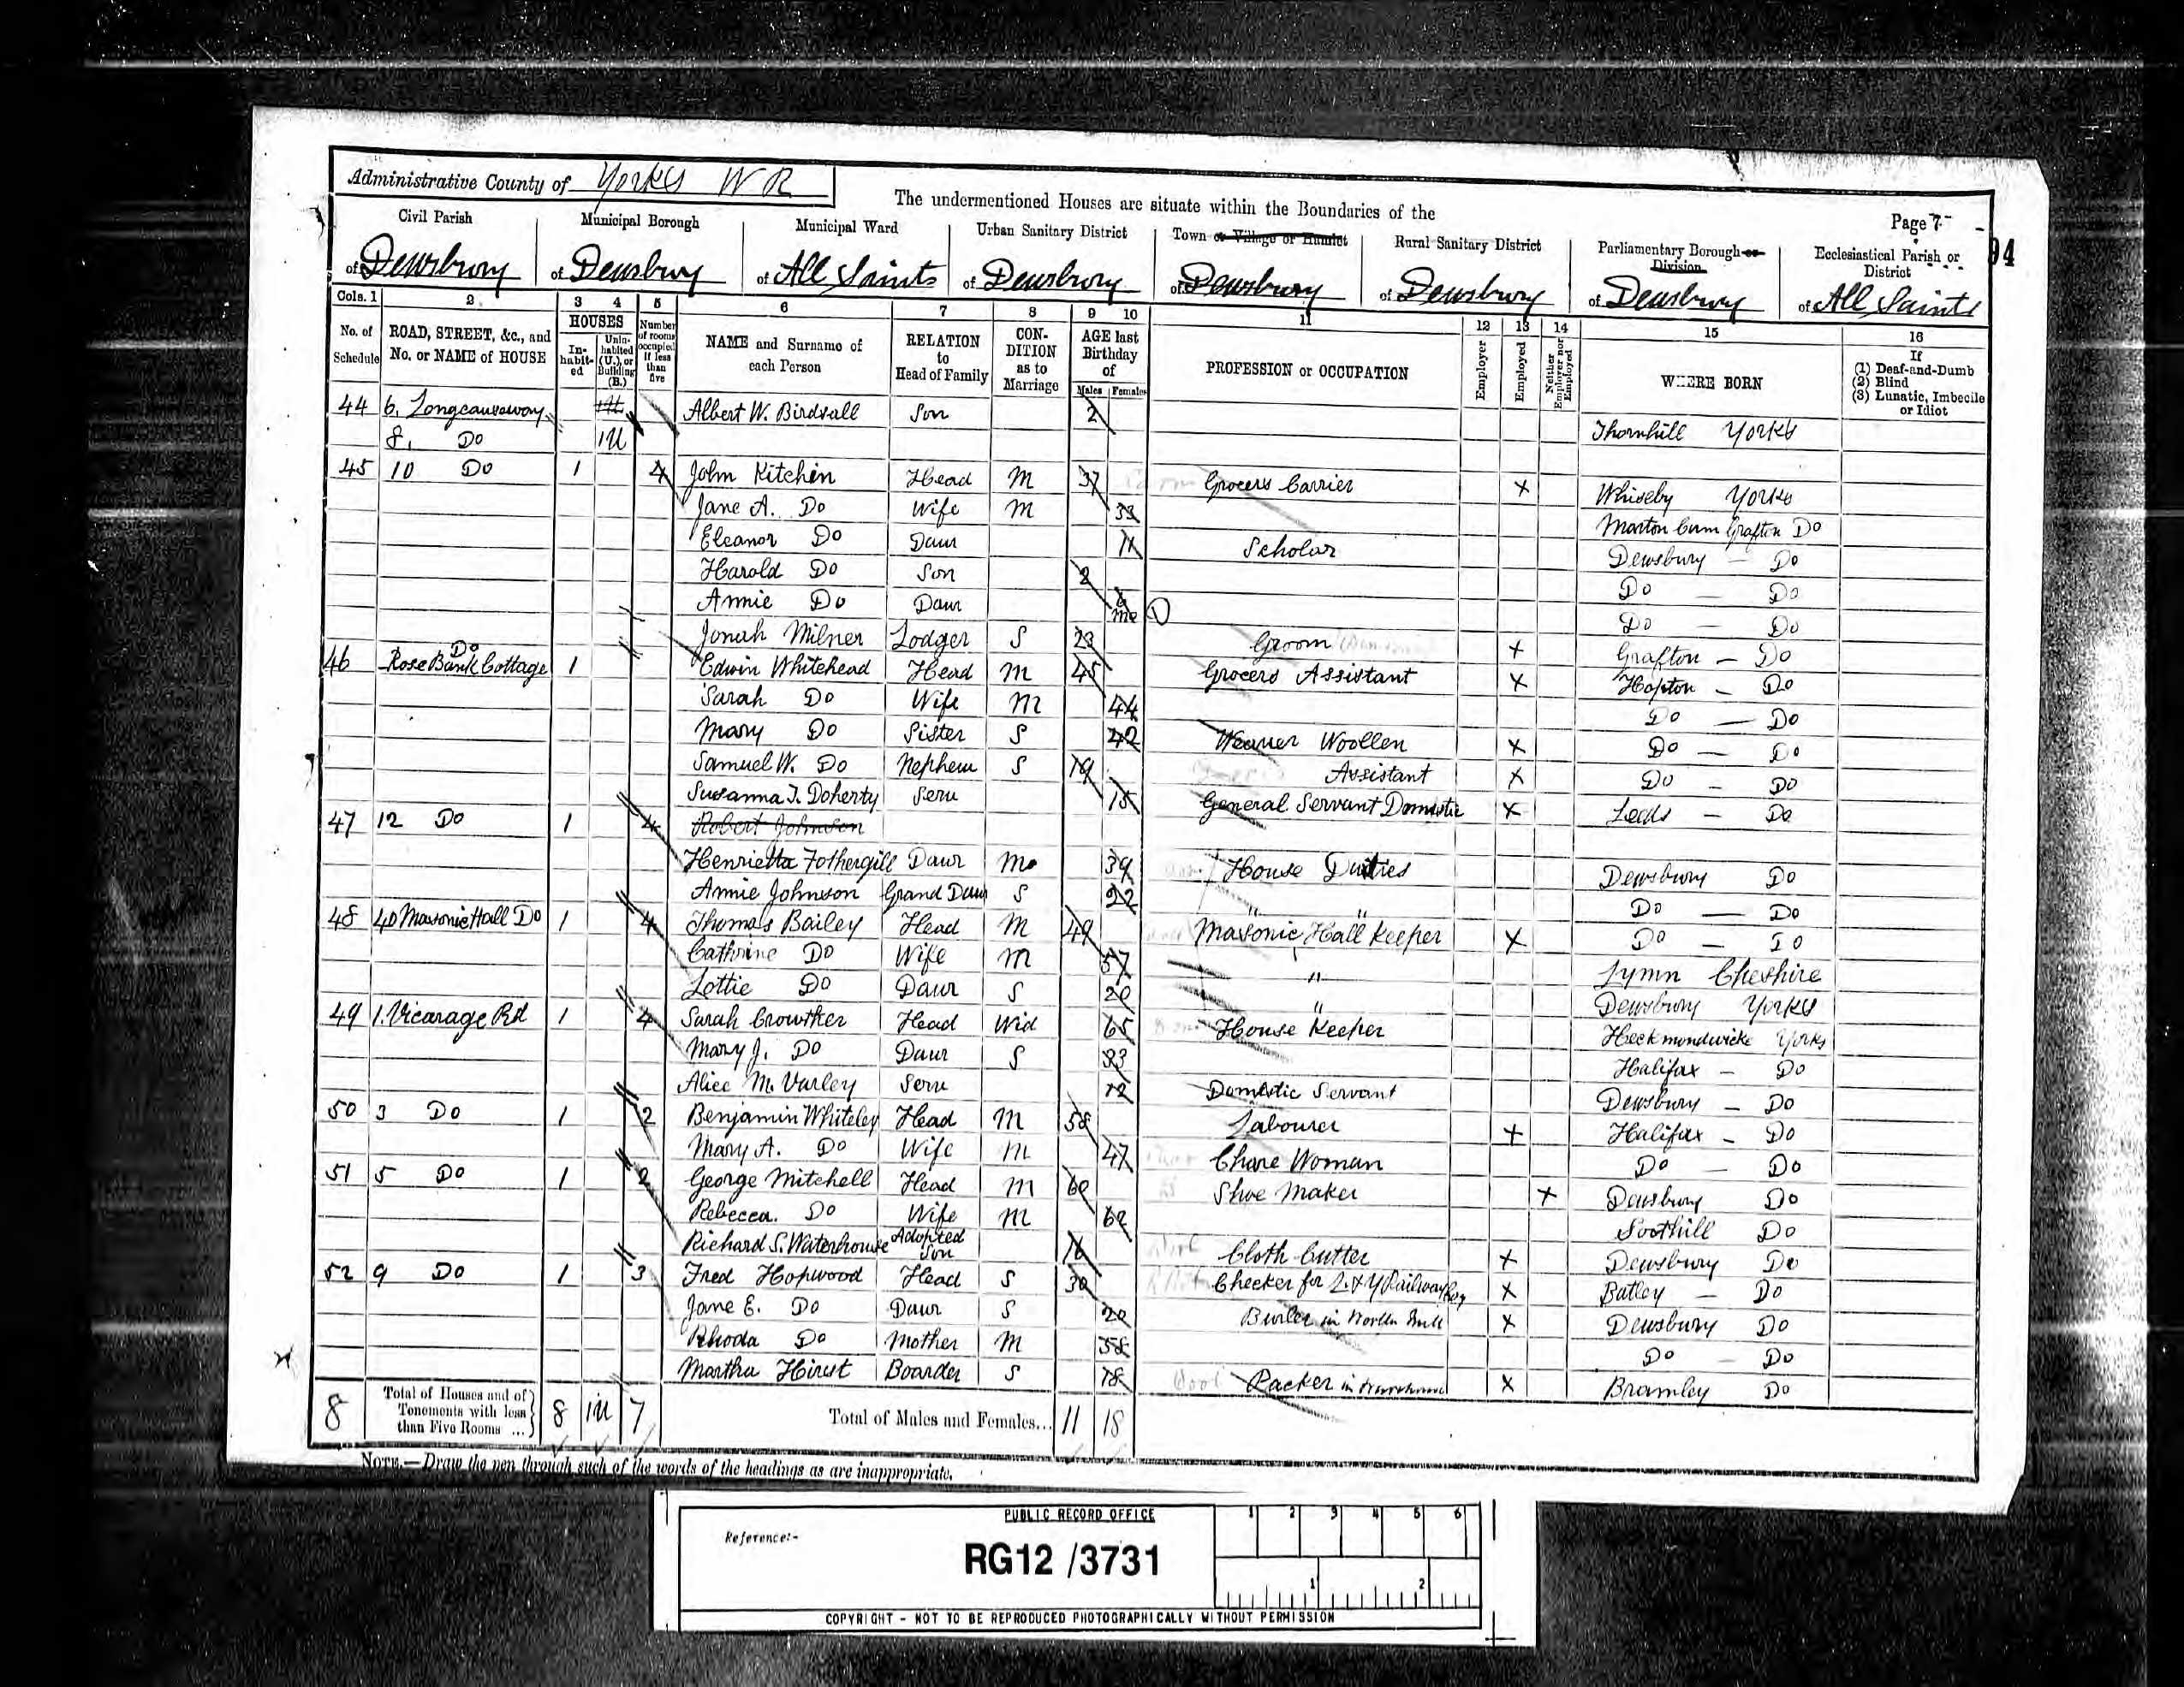 Administrative County of Yorks W R
The undermentioned Houses are situate within the Boundaries of the
Page 7
94
Civil Parish Municipal Borough Municipal Ward Urban Sanitary District Town or Village or Hamlet Rural Sanitary District Parliamentary Borough or Division Ecclesiastical Parish or District
of Dewsbury of Dewsbury of All Saints of Dewsbury of Dewsbury of Dewsbury of Dewsbury of All Saints
Cols. 1 2 3 4 5 6 7 8 9 10 11 12 13 14 15 16
No. of Schedule ROAD, STREET, &c., and No. or NAME of HOUSE HOUSES Inhabited Uninhabited (U.), or Building (B.) Number of rooms occupied if less than five NAME and Surname of each Person RELATION to Head of Family CONDITION as to Marriage AGE last Birthday of Males Females PROFESSION or OCCUPATION Employer Employed Neither Employer nor Employed WHERE BORN If (1) Deaf-and-Dumb (2) Blind (3) Lunatic, Imbecile or Idiot
44 6. Longcauseway 1U Albert W. Birdsall Son 2 Thornhill Yorks
8. Do 1U
45 10 Do 1 4 John Kitchin Head M 37 Grocers Carrier X Whixeby Yorks
Jane A. Do Wife M 33 Marton Cum Grafton Do
Eleanor Do Daur 11 Scholar Dewsbury - Do
Harold Do Son 2 Do - Do
Annie Do Daur 6 mo Do - Do
Jonah Milner Lodger S 23 Groom X Grafton - Do
46 Do Rose Bank Cottage 1 Edwin Whitehead Head M 45 Grocers Assistant X Hopton - Do
Sarah Do Wife M 44 Do - Do
Mary Do Sister S 42 Weaver Woollen X Do - Do
Samuel W. Do Nephew S 19 Assistant X Do - Do
Susanna J. Doherty Serv 15 General Servant Domestic X Leeds - Do
47 12 Do 1 4 Robert Johnson
Henrietta Fothergill Daur M 39 House Duties Dewsbury Do
Annie Johnson Grand Daur S 22 " " Do - Do
48 40 Masonic Hall Do 1 4 Thomas Bailey Head M 49 Masonic Hall Keeper X Do - Do
Cathrine Do Wife M 57 " Lymn Cheshire
Lottie Do Daur S 20 " Dewsbury Yorks
49 1. Vicarage Rd 1 4 Sarah Crowther Head Wid 65 House Keeper Heckmondwicke Yorks
Mary J. Do Daur S 33 Halifax - Do
Alice M. Varley Serv 12 Domestic Servant Dewsbury - Do
50 3 Do 1 2 Benjamin Whiteley Head M 58 Labourer X Halifax - Do
Mary A. Do Wife M 47 Chare Woman Do - Do
51 5 Do 1 2 George Mitchell Head M 60 Shoe Maker X Dewsbury Do
Rebecca. Do Wife M 62 Soothill Do
Richard S. Waterhouse Adopted Son 16 Cloth Cutter X Dewsbury Do
52 9 Do 1 3 Fred Hopwood Head S 30 Checker for L & Y Railway Coy X Batley - Do
Jane E. Do Daur S 20 Burler in Woollen Mill X Dewsbury Do
Rhoda Do Mother M 58 Do - Do
Martha Hirst Boarder S 18 Packer in Warehouse X Bramley Do
8 Total of Houses and of Tenements with less than Five Rooms ... 8 1U 7 Total of Males and Females... 11 18
NOTE.—Draw the pen through such of the words of the headings as are inappropriate.
PUBLIC RECORD OFFICE
1 2 3 4 5 6
Reference:-
RG12 /3731
1 2
COPYRIGHT - NOT TO BE REPRODUCED PHOTOGRAPHICALLY WITHOUT PERMISSION